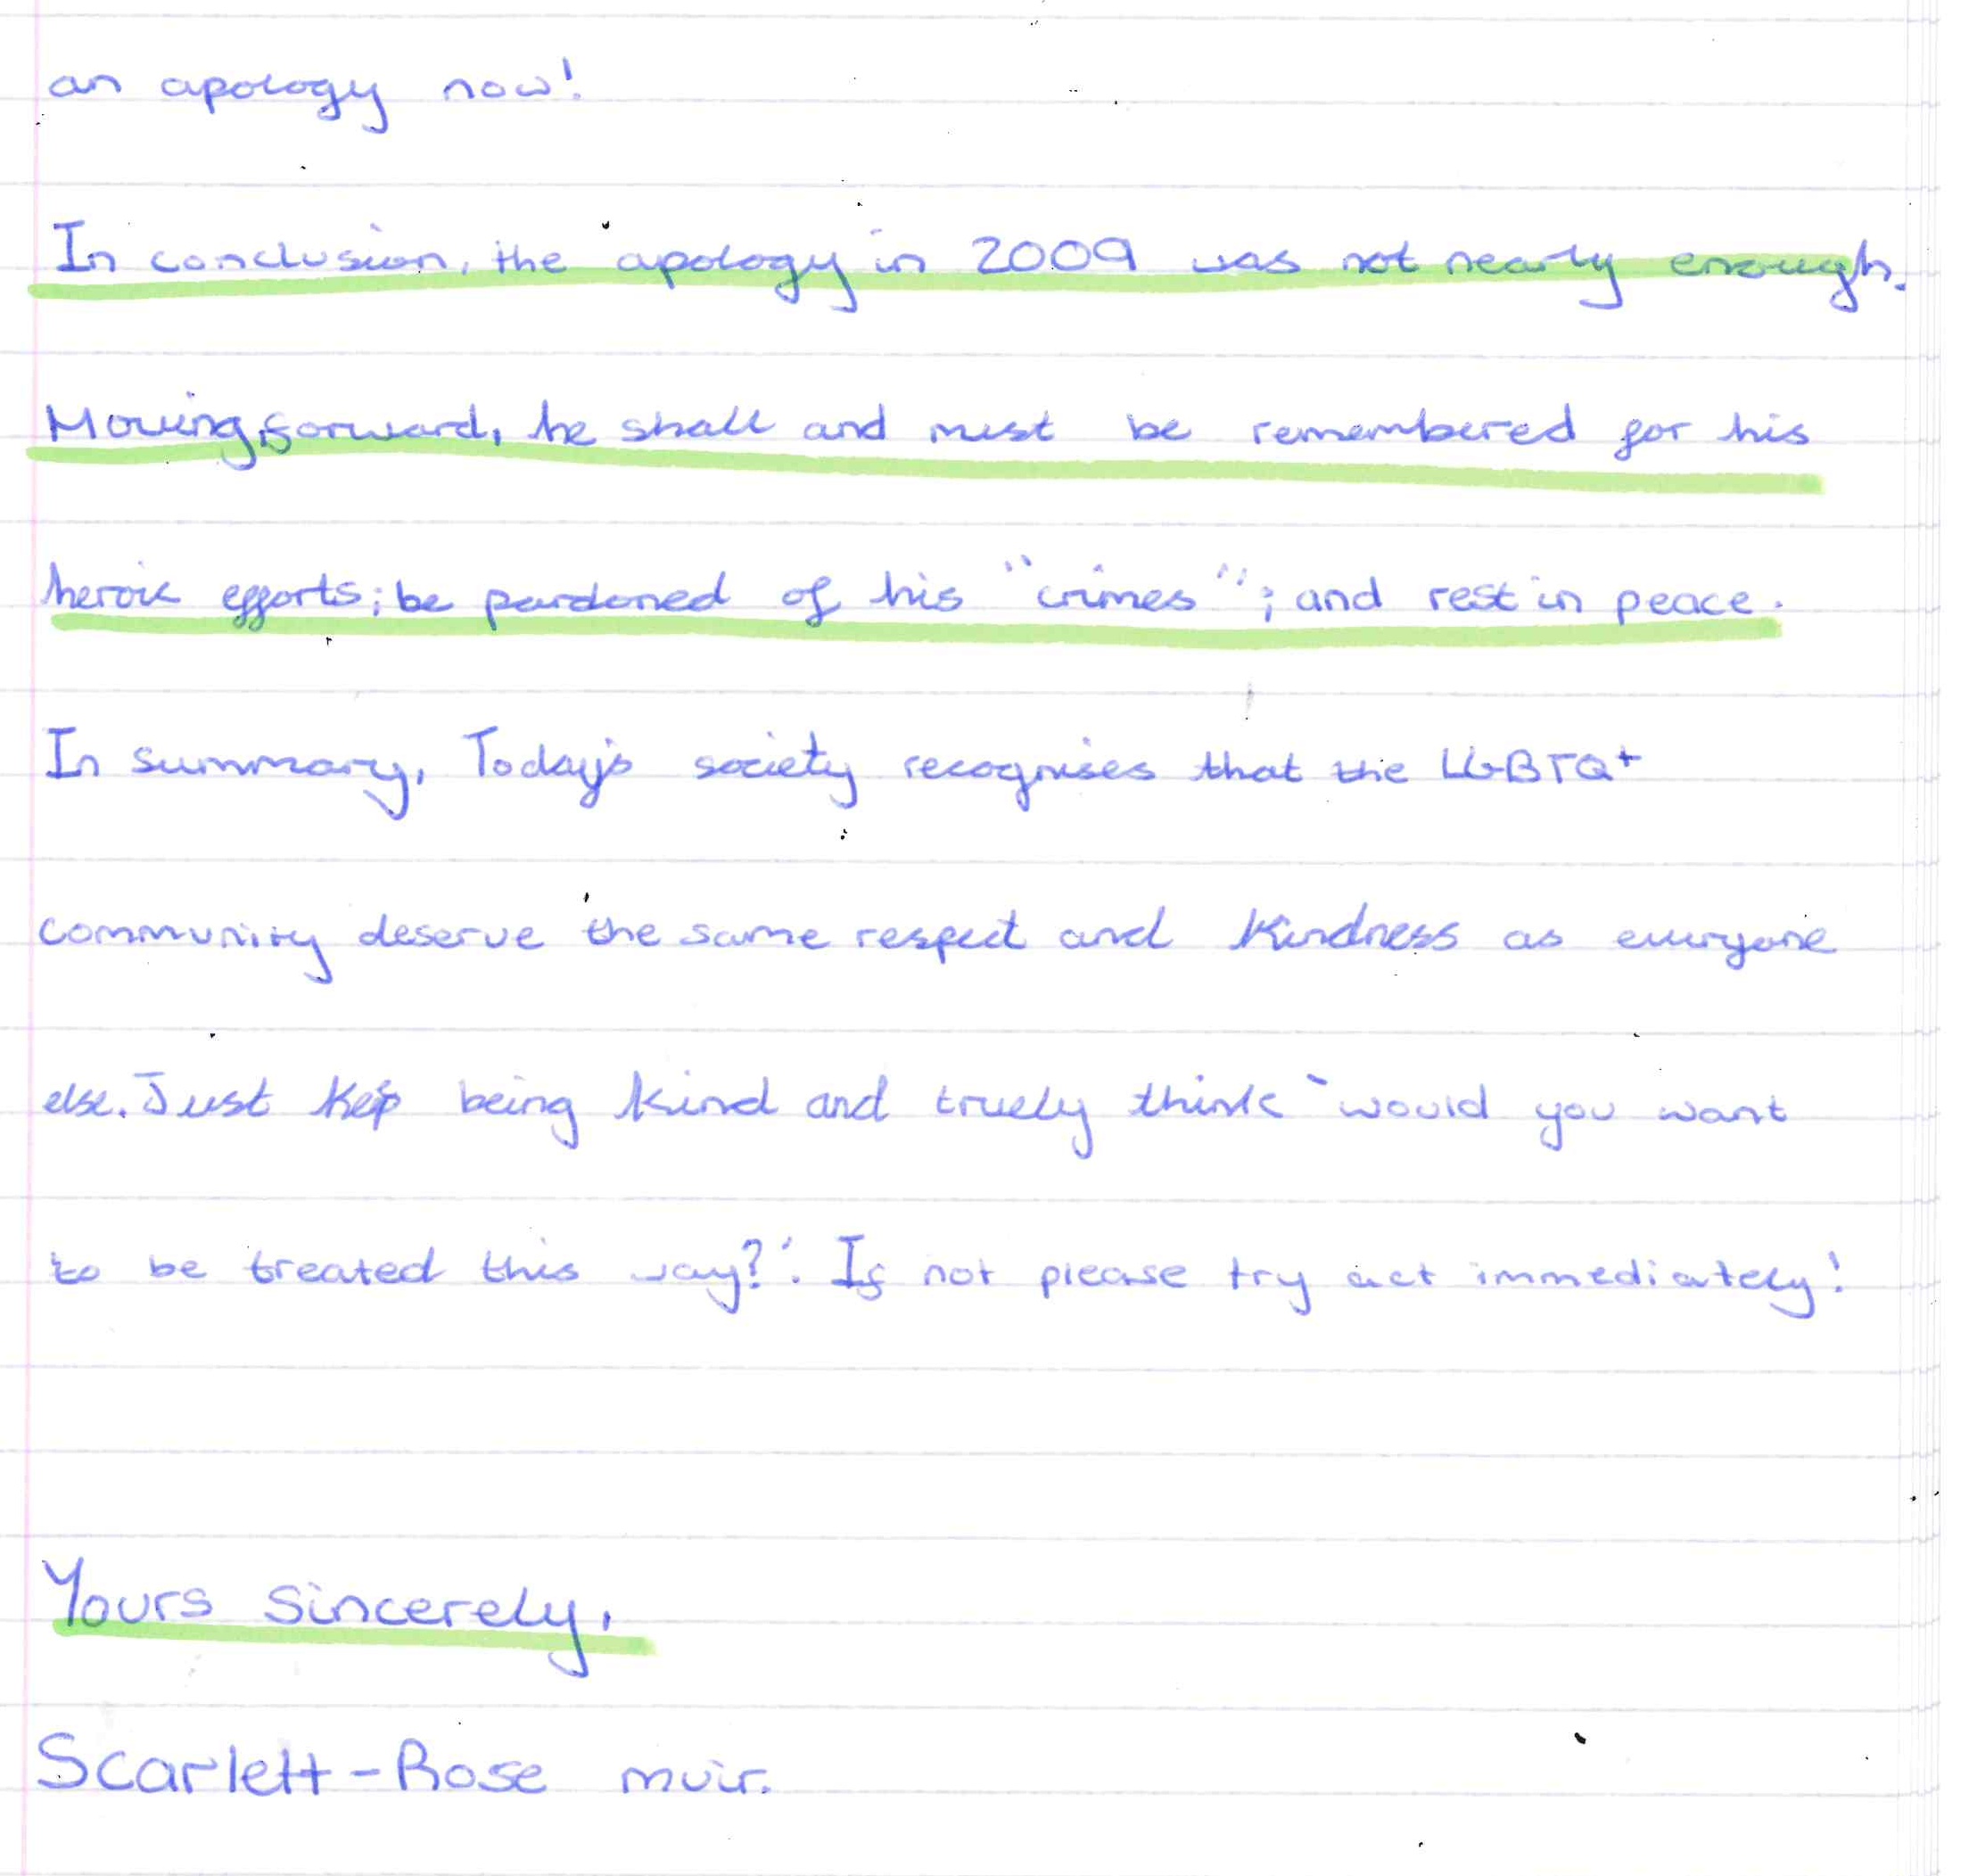 an apology now!
In conclusion, the apology in 2009 was not nearly enough.
Moving forward, he shall and must be remembered for his
heroic efforts; be pardoned of his "crimes"; and rest in peace.
In summary, Today's society recognises that the LGBTQ+
community deserve the same respect and kindness as everyone
else. Just kep being kind and truely think 'would you want
to be treated this way?'. If not please try act immediately!
Yours sincerely,
Scarlett-Rose muir.